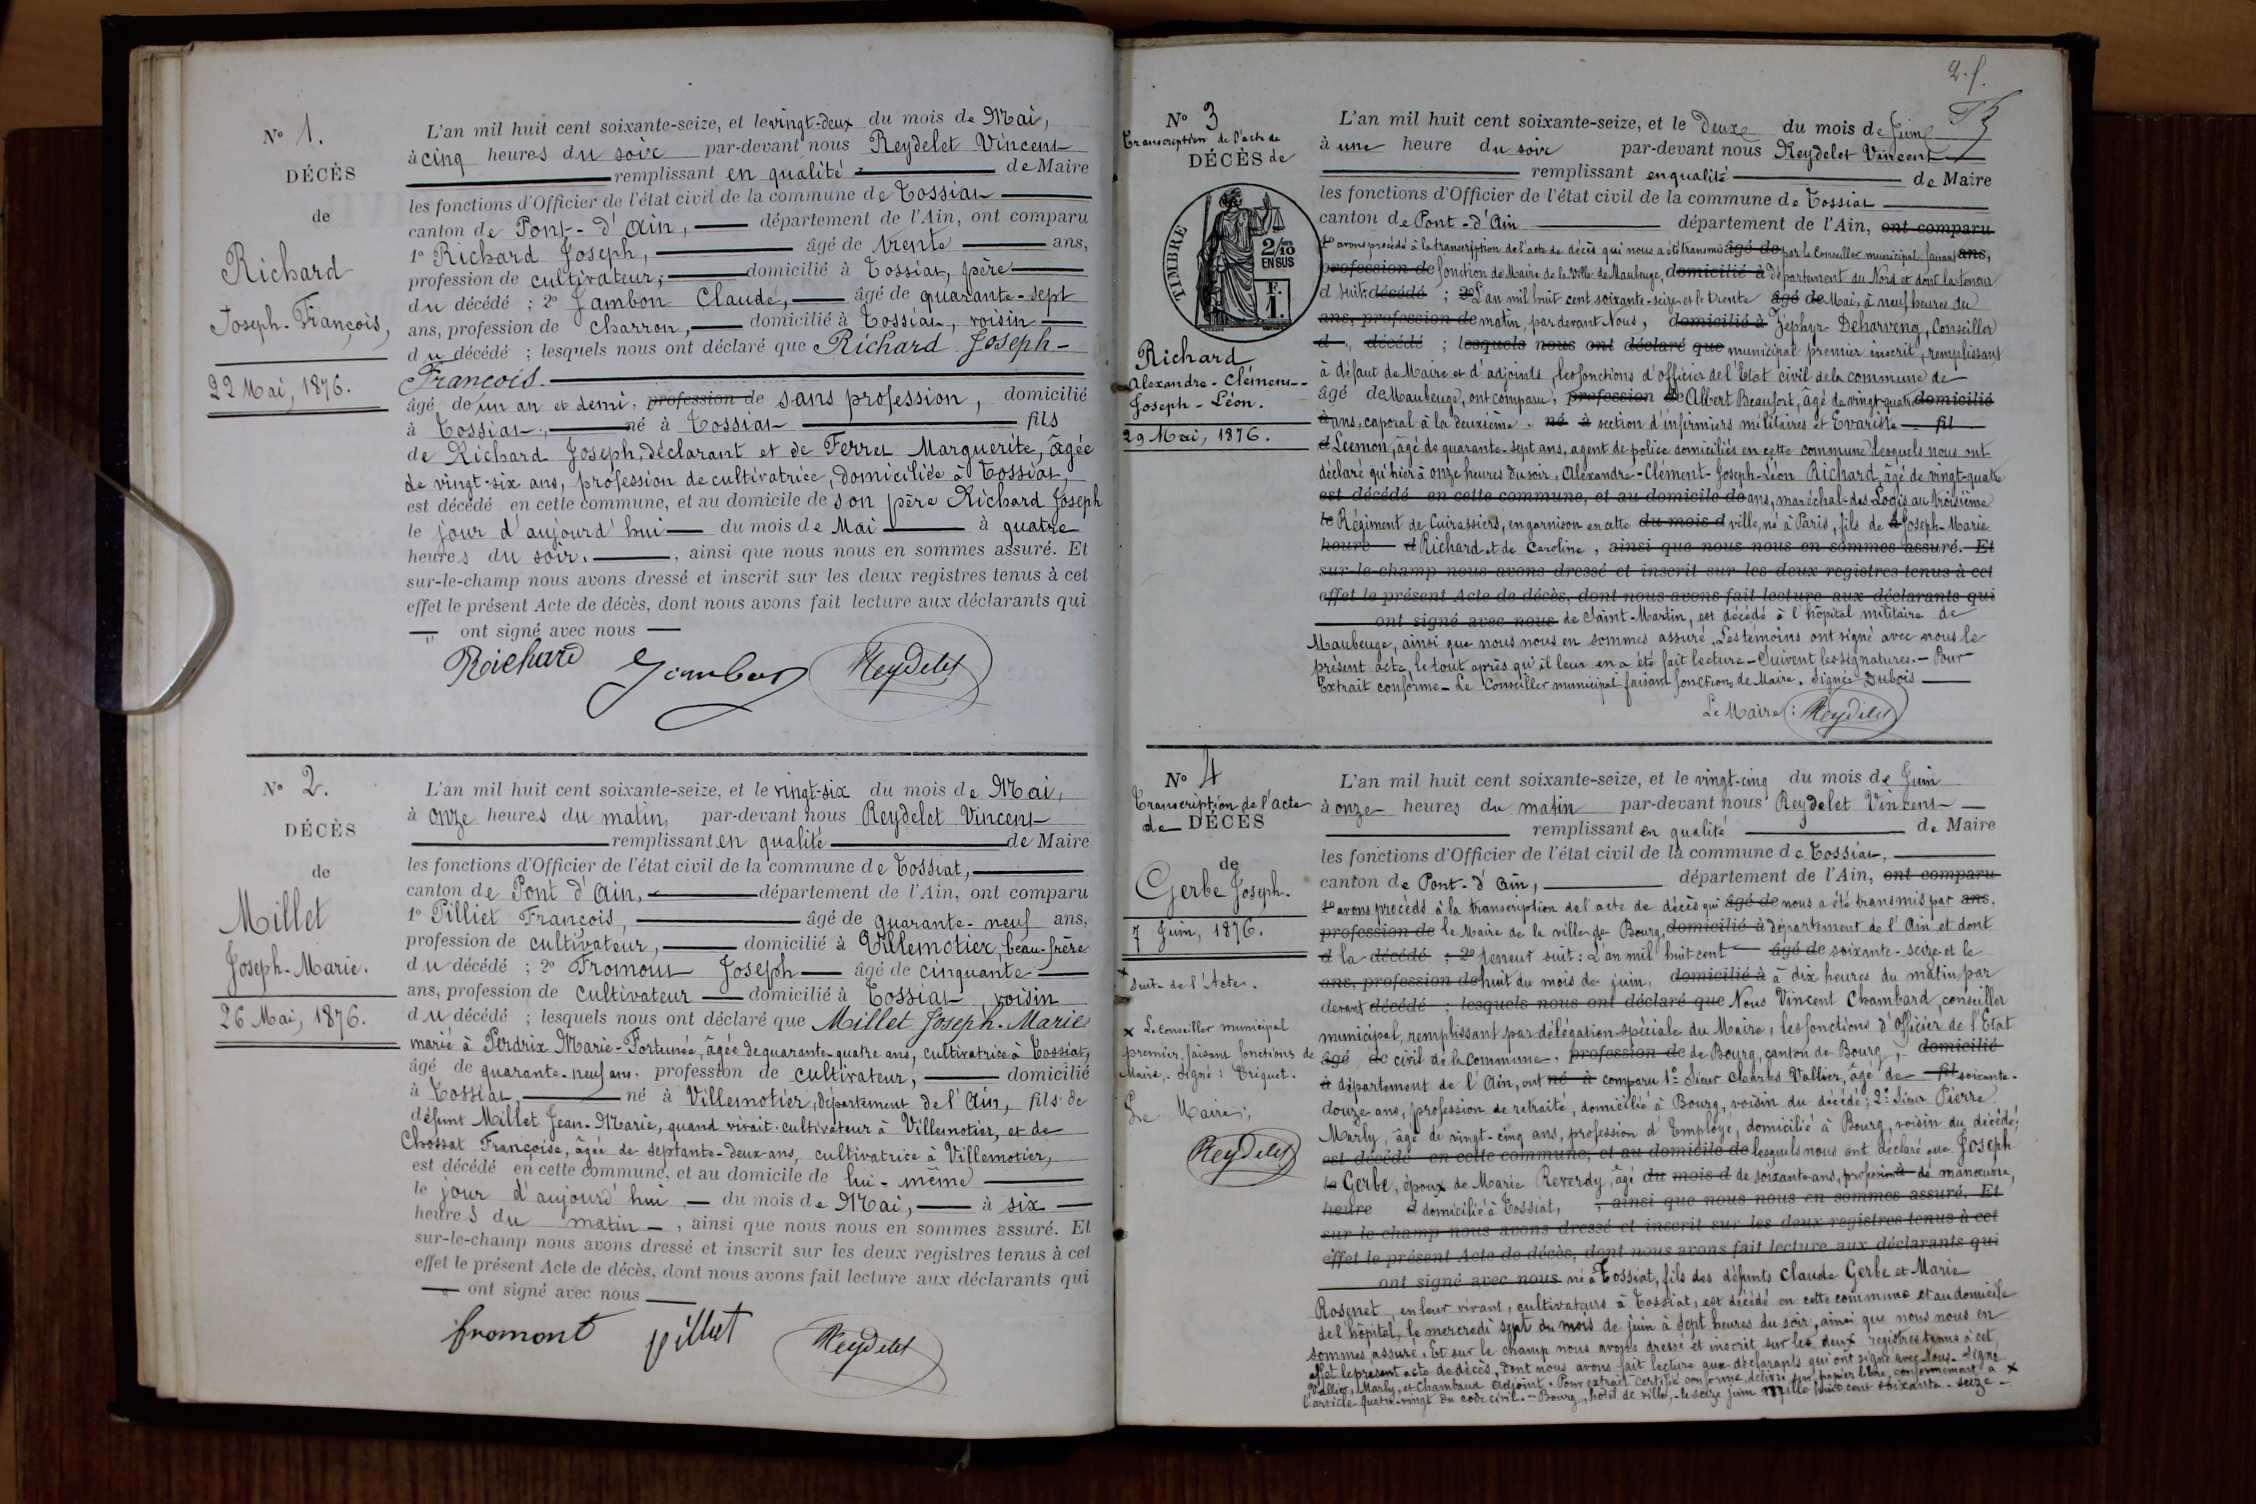 N° 1.
DÉCÈS
de
Richard
Joseph-François,
22 Mai, 1876.
L'an mil huit cent soixante-seize, et le vingt-deux du mois de Mai,
à cinq heures du soir par-devant nous Reydelet Vincent
remplissant en qualité de Maire
les fonctions d'Officier de l'état civil de la commune de Tossiat
canton de Pont-d'Ain, département de l'Ain, ont comparu
1° Richard Joseph, âgé de trente ans,
profession de cultivateur, domicilié à Tossiat, père
du décédé ; 2° Jambon Claude, âgé de quarante-sept
ans, profession de charron, domicilié à Tossiat, voisin
du décédé ; lesquels nous ont déclaré que Richard Joseph-
François.
âgé de un an et demi, profession de sans profession, domicilié
à Tossiat, né à Tossiat fils
de Richard Joseph, déclarant et de Ferret Marguerite, âgée
de vingt-six ans, profession de cultivatrice, domiciliée à Tossiat,
est décédé en cette commune, et au domicile de son père Richard Joseph
le jour d'aujourd'hui du mois de Mai à quatre
heures du soir, ainsi que nous nous en sommes assuré. Et
sur-le-champ nous avons dressé et inscrit sur les deux registres tenus à cet
effet le présent Acte de décès, dont nous avons fait lecture aux déclarants qui
ont signé avec nous
Richard Jambon Reydelet
N° 2.
DÉCÈS
de
Millet
Joseph-Marie.
26 Mai, 1876.
L'an mil huit cent soixante-seize, et le vingt-six du mois de Mai,
à onze heures du matin, par-devant nous Reydelet Vincent
remplissant en qualité de Maire
les fonctions d'Officier de l'état civil de la commune de Tossiat,
canton de Pont d'Ain, département de l'Ain, ont comparu
1° Pilliet François, âgé de quarante-neuf ans,
profession de cultivateur, domicilié à Villemotier, beau-frère
du décédé ; 2° Fromont Joseph âgé de cinquante
ans, profession de cultivateur domicilié à Tossiat, voisin
du décédé ; lesquels nous ont déclaré que Millet Joseph-Marie
marié à Perdrix Marie-Fortunée, âgée de quarante-quatre ans, cultivatrice à Tossiat,
âgé de quarante-neuf ans, profession de cultivateur, domicilié
à Tossiat, né à Villemotier, département de l'Ain, fils de
défunt Millet Jean-Marie, quand vivait cultivateur à Villemotier, et de
Chossat Françoise, âgée de septante-deux ans, cultivatrice à Villemotier,
est décédé en cette commune, et au domicile de lui-même
le jour d'aujourd'hui du mois de Mai, à six
heures du matin, ainsi que nous nous en sommes assuré. Et
sur-le-champ nous avons dressé et inscrit sur les deux registres tenus à cet
effet le présent Acte de décès, dont nous avons fait lecture aux déclarants qui
ont signé avec nous
fromont pilliet Reydelet
2. f.
N° 3
Transcription de l'acte de
DÉCÈS de
TIMBRE
2/10
EN SUS
F.
1.
Richard
Alexandre-Clément-
Joseph-Léon.
29 Mai, 1876.
L'an mil huit cent soixante-seize, et le deux du mois de Juin
à une heure du soir par-devant nous Reydelet Vincent
remplissant en qualité de Maire
les fonctions d'Officier de l'état civil de la commune de Tossiat
canton de Pont-d'Ain département de l'Ain, ont comparu
1° avons procédé à la transcription de l'acte de décès qui nous a été transmis âgé de par le Conseiller municipal faisant ans,
profession de fonction de Maire de la Ville de Maubeuge, domicilié à département du Nord et dont la teneur
d suit: décédé ; 2° L'an mil huit cent soixante-seize et le trente âgé de Mai, à neuf heures du
ans, profession de matin, par devant Nous, domicilié à Zéphyr Deharveng, Conseiller
d décédé ; lesquels nous ont déclaré que municipal premier inscrit, remplissant
à défaut de Maire et d'adjoints, les fonctions d'officier de l'Etat civil de la commune de
âgé de Maubeuge, ont comparu, profession de Albert Beaufort, âgé de vingt-quatre domicilié
à ans, caporal à la deuxième né à section d'infirmiers militaires et Evariste fil
d Leemon, âgé de quarante-sept ans, agent de police domiciliés en cette commune lesquels nous ont
déclaré qu'hier à onze heures du soir, Alexandre-Clément-Joseph-Léon Richard, âgé de vingt-quatre
est décédé en cette commune, et au domicile de ans, maréchal-des-Logis au troisième
le Régiment de Cuirassiers, en garnison en cette du mois d ville, né à Paris, fils de à Joseph-Marie
heure d Richard et de Caroline, ainsi que nous nous en sommes assuré. Et
sur-le-champ nous avons dressé et inscrit sur les deux registres tenus à cet
effet le présent Acte de décès, dont nous avons fait lecture aux déclarants qui
ont signé avec nous de Saint-Martin, est décédé à l'hôpital militaire de
Maubeuge, ainsi que nous nous en sommes assuré. Les témoins ont signé avec nous le
présent acte, le tout après qu'il leur en a été fait lecture - Suivent les signatures. - Pour
Extrait conforme - Le Conseiller municipal faisant fonctions de Maire. Signé: Dubois
Le Maire : Reydelet
N° 4
Transcription de l'acte
de DÉCÈS
de
Gerbe Joseph.
7 Juin, 1876.
x Suite de l'Acte.
x Le conseiller municipal
premier, faisant fonctions de
Maire. - Signé : Triquet.
Le Maire,
Reydelet
L'an mil huit cent soixante-seize, et le vingt-cinq du mois de Juin
à onze heures du matin par-devant nous Reydelet Vincent
remplissant en qualité de Maire
les fonctions d'Officier de l'état civil de la commune de Tossiat,
canton de Pont-d'Ain, département de l'Ain, ont comparu
1° avons procédé à la transcription de l'acte de décès qui âgé de nous a été transmis par ans,
profession de le Maire de la ville de Bourg, domicilié à département de l'Ain et dont
d la décédé ; 2° teneur suit: L'an mil huit cent âgé de soixante-seize et le
ans, profession de huit du mois de juin, domicilié à à dix heures du matin par
devant décédé ; lesquels nous ont déclaré que Nous Vincent Chambard, conseiller
municipal, remplissant par délégation spéciale du Maire, les fonctions d'Officier de l'Etat
âgé de civil de la Commune, profession de de Bourg, canton de Bourg, domicilié
à département de l'Ain, ont né à comparu 1° Sieur Charles Vallier, âgé de fil soixante-
douze ans, profession de retraité, domicilié à Bourg, voisin du décédé ; 2° Sieur Pierre
Marly, âgé de vingt-cinq ans, profession d'Employé, domicilié à Bourg, voisin du décédé;
est décédé en cette commune, et au domicile de lesquels nous ont déclaré que Joseph
le Gerbe, époux de Marie Reverdy, âgé du mois d de soixante ans, profession à de manœuvre,
heure d domicilié à Tossiat, ainsi que nous nous en sommes assuré. Et
sur-le-champ nous avons dressé et inscrit sur les deux registres tenus à cet
effet le présent Acte de décès, dont nous avons fait lecture aux déclarants qui
ont signé avec nous né à Tossiat, fils des défunts Claude Gerbe et Marie
Rosenet en leur vivant, cultivateurs à Tossiat, est décédé en cette commune et au domicile
de l'hôpital, le mercredi sept du mois de juin à sept heures du soir, ainsi que nous nous en
sommes assuré. Et sur le champ nous avons dressé et inscrit sur les deux registres tenus à cet
effet le présent acte de décès, dont nous avons fait lecture aux déclarants qui ont signé avec Nous. Signé
Vallier, Marly, et Chambaud adjoint. Pour extrait certifié conforme, délivré sur papier libre, conformément à x
l'article quatre-vingt du code civil. - Bourg, hôtel de ville, - le seize juin mille huit cent soixante-seize -